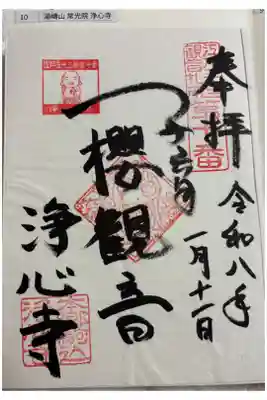 10 湯嶹山 常光院 浄心寺
奉拝
令和八年
一月十一日
子育
櫻観音
浄心寺